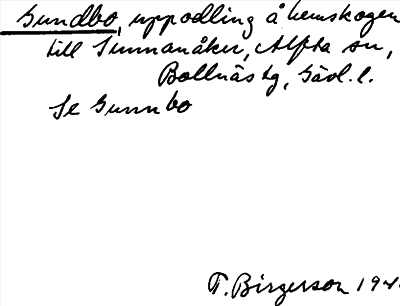 Gundbo, uppodling å hemskogen
till Sunnanåker, Alfta sn,
Bollnäs tg, Gävl. l.
Se Gunnbo
T. Birgerson 194